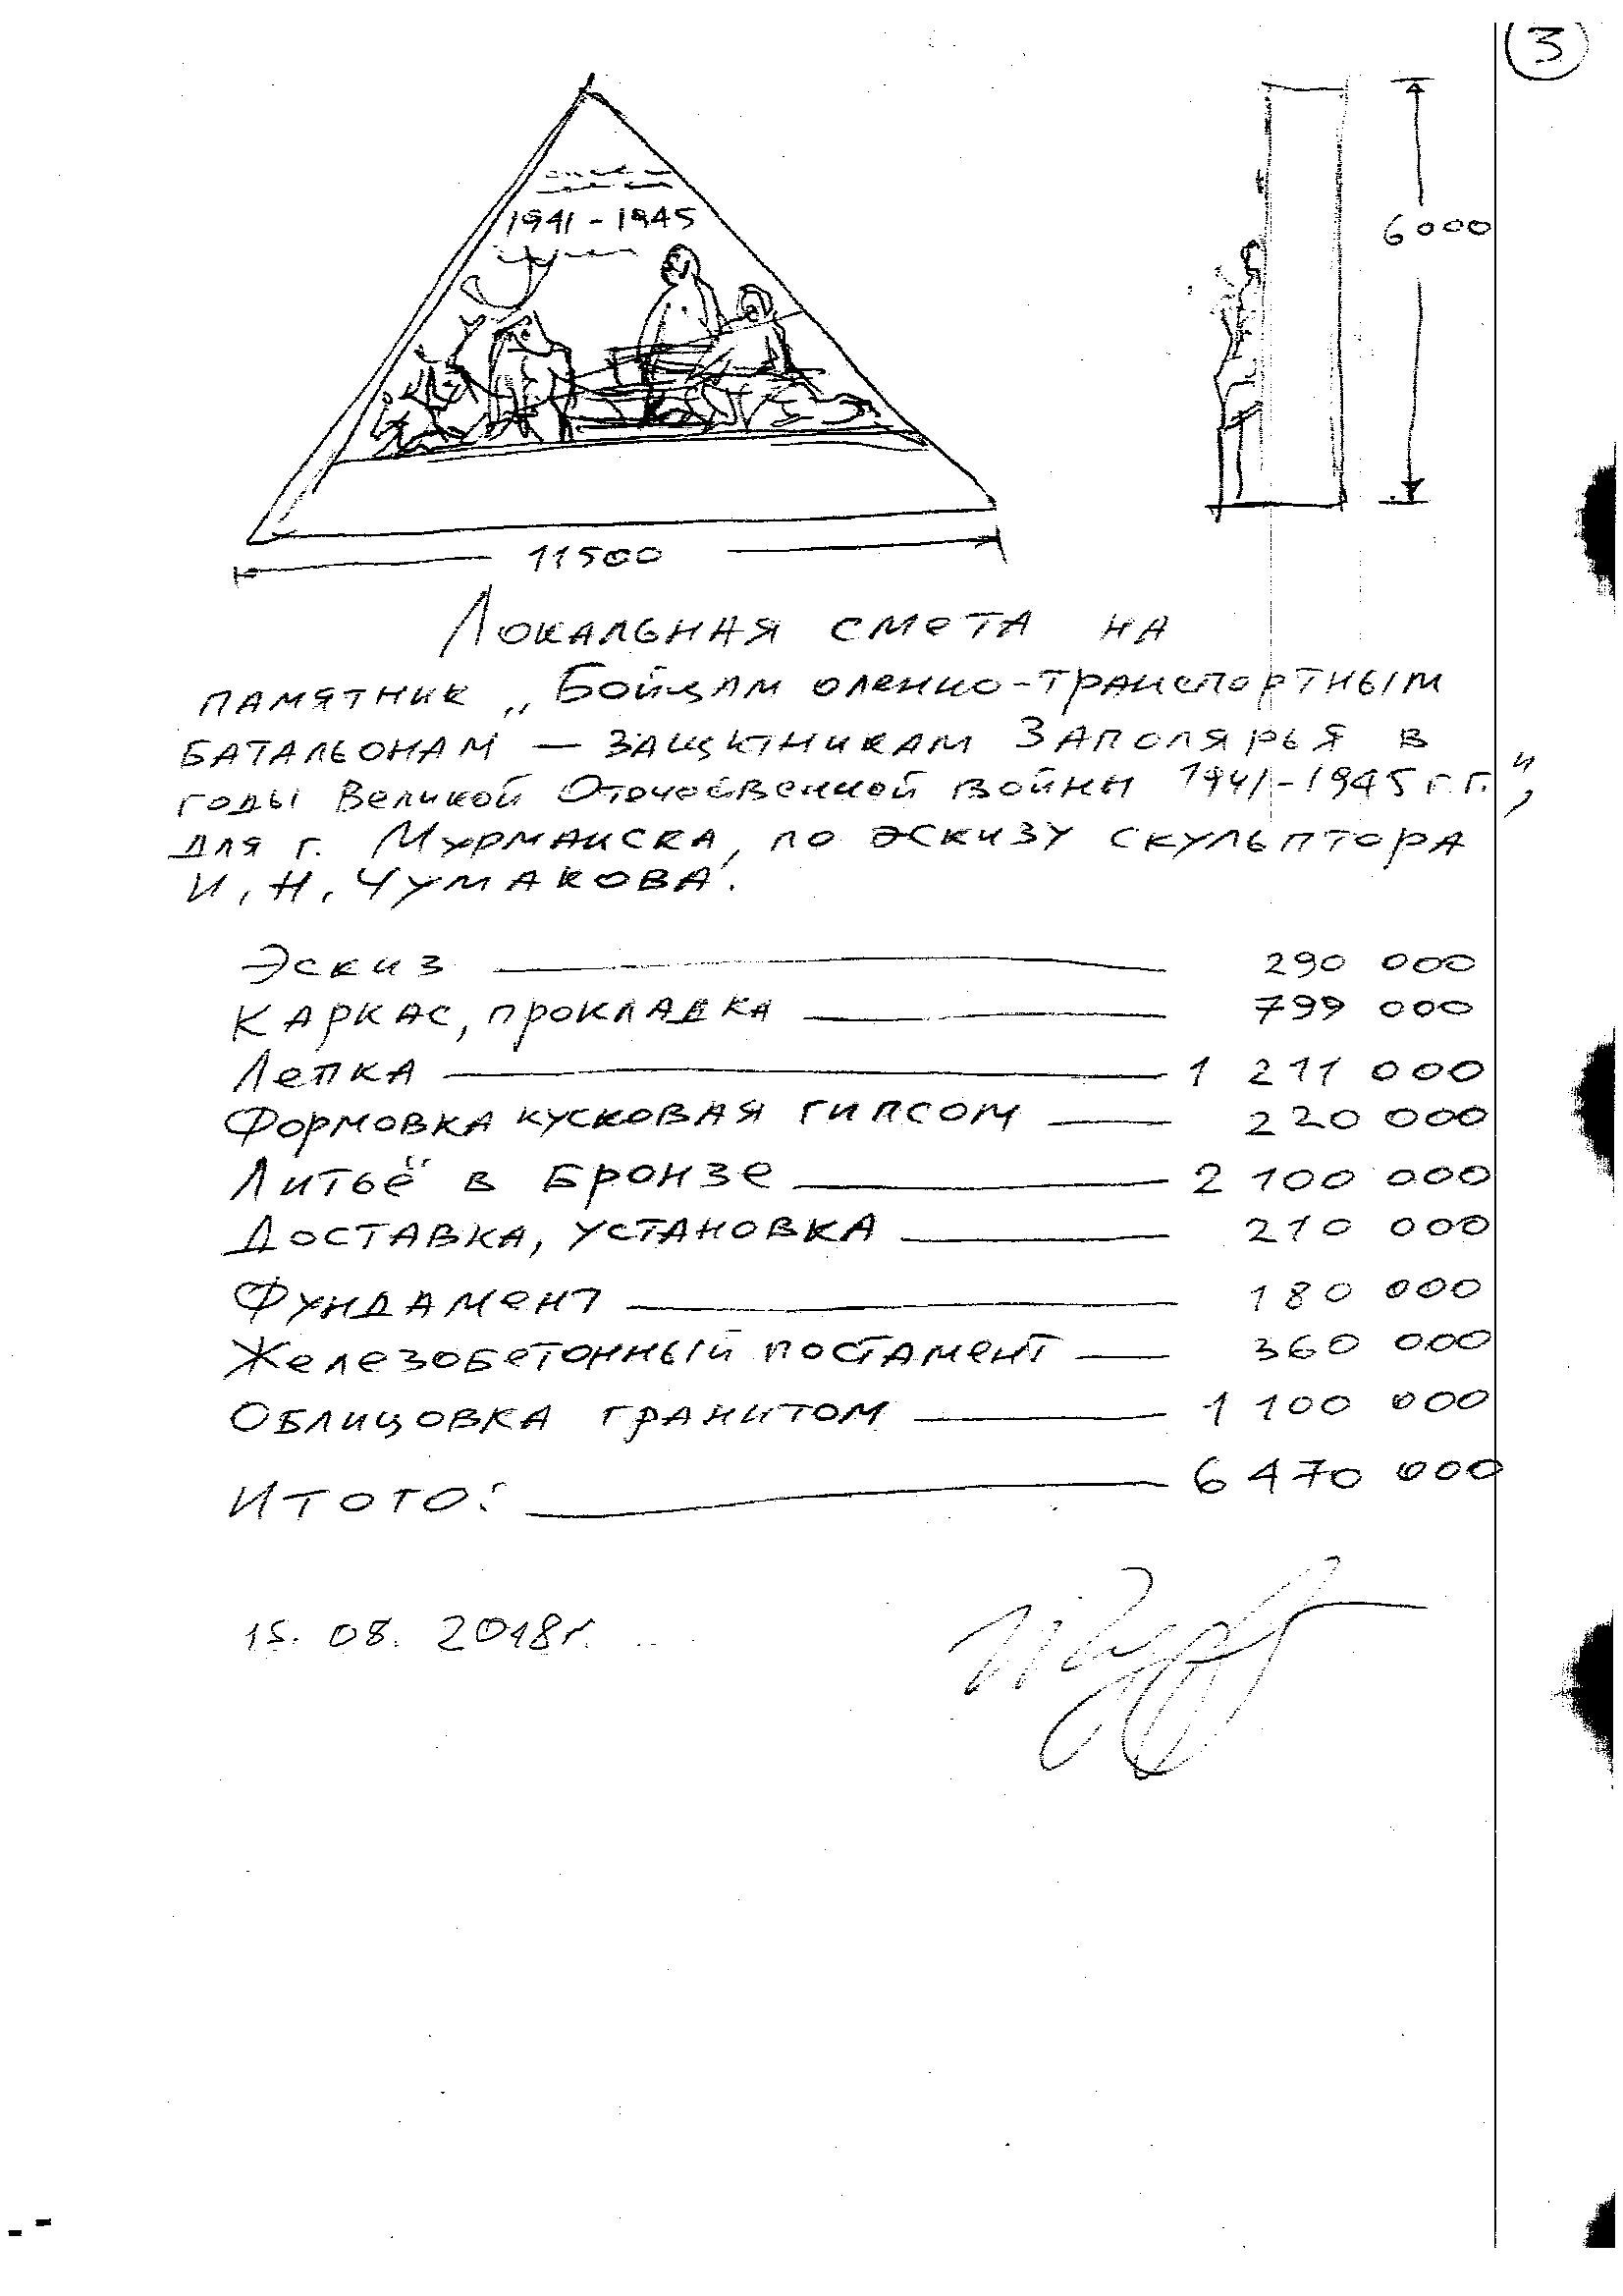 3
1941 - 1945
6000
11500
Локальная смета на
памятник „Бойцам оленно-транспортным
батальонам — защитникам Заполярья в
годы Великой Отечественной войны 1941-1945 г.г.",
для г. Мурманска, по эскизу скульптора
И.Н. Чумакова.
Эскиз — 290 000
Каркас, прокладка — 799 000
Лепка — 1 211 000
Формовка кусковая гипсом — 220 000
Литьё в бронзе — 2 100 000
Доставка, установка — 210 000
Фундамент — 180 000
Железобетонный постамент — 360 000
Облицовка гранитом — 1 100 000
Итого: — 6 470 000
15.08.2018г.